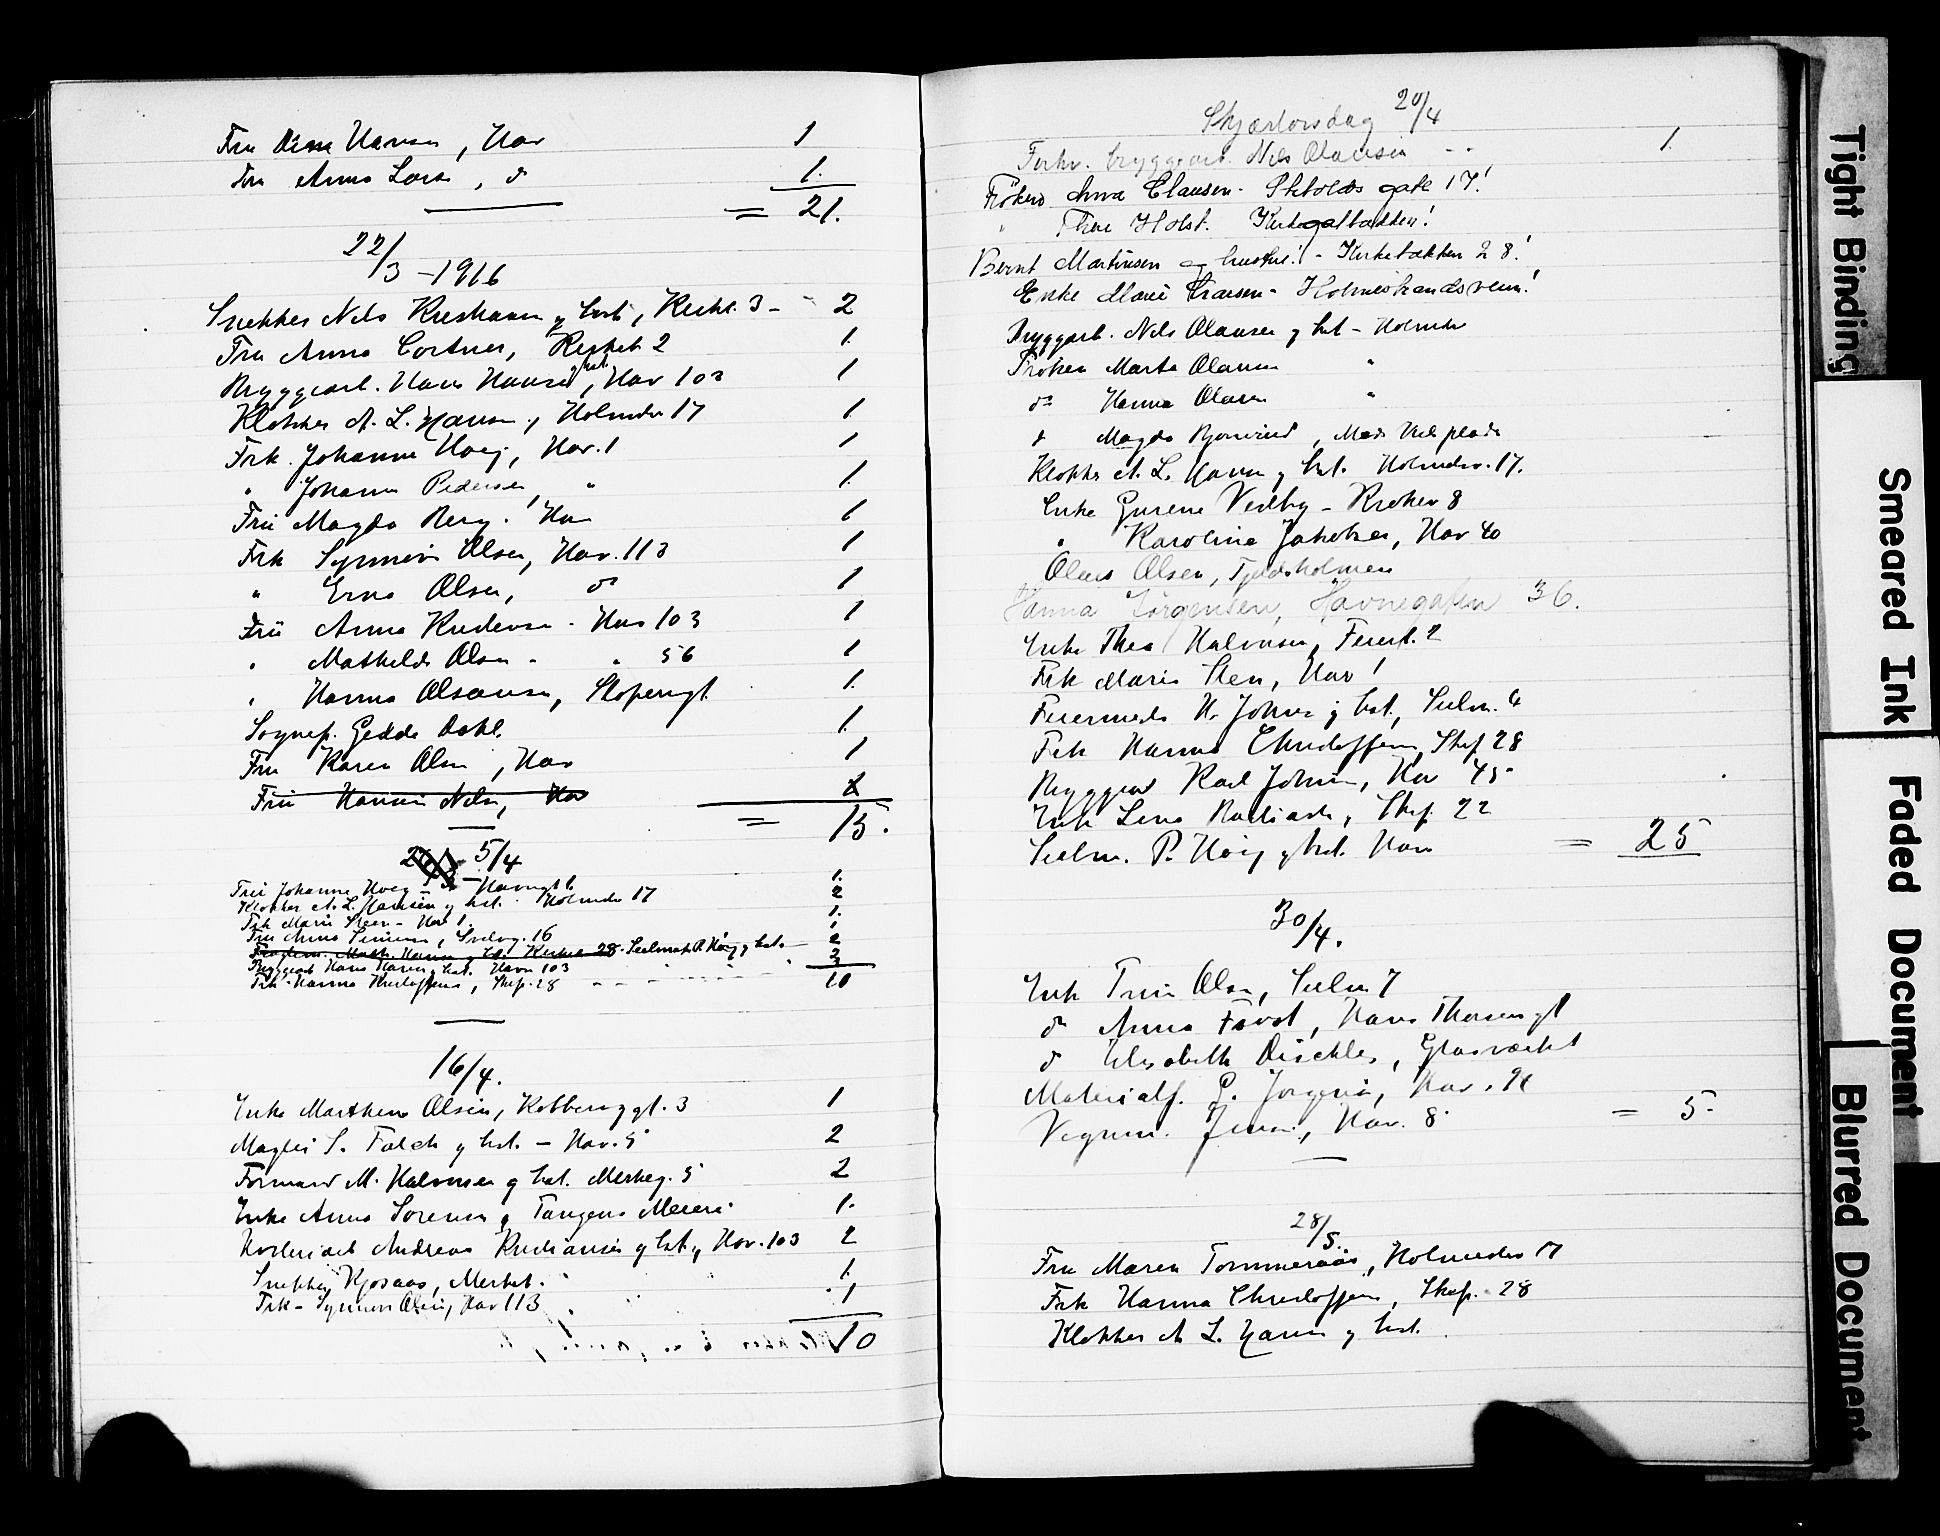 Fru Olsen Hansen, Hav 1
Fru Anna Lars, do 1.
= 21.
22/3 – 1916
Snekker Nils Kristiansen og hust, Kirkt. 3 – 2
Fru Anna Cortner, Kirket 2 1
Bryggearb. Hans Hansen og hst., Hav 103 1
Klokker A. L. Hansen, Holmedr 17 1
Frk. Johanne Hoeg, Hav. 1 1
" Johanne Pedersen " 1
Fru Magda Berg. Hav 1
Frk Synnøve Olsen, Hav. 113 1
" Erna Olsen, do 1
Frü Anna Kudersen - Hav 103 1
" Mathilde Olsen - " 56 1
" Hanna Olsen, Skoperigt. 1
Sognep. Gedde Dahl. 1
Fru Karen Olsen, Hav 1
Frü Hanna Nils, Hav 1
= 15.
5/4
Frü Johanne Hoeg - Havnegt 1 1.
Klokker A. L. Hansen og hst. Holmedr 17 2
Frk Marie Steen - Hav 1. 1.
Fru Anna Simens, Svelvg. 16 1
Hansen og hst. Kirkeb 28. Seelmak. P. Høeg og hst. – 2
Bryggearb Hans Hansen og hst. Havn 103 2
Frk. Hanna Kristoffersen, Skip. 28 – – –
10
16/4.
Enke Marthine Olsen, Kobberviggt. 3 1
S. Falch og hst. – Hav. 5 2
Formand M. Halvorsen og hst. Merkeg. 5 2
Enke Anna Sørensen, Tangens Meieri 1.
Andreas Kristiansen og hst, Hav. 103 2
Snekker Kjosaas, Merket. 1.
Frk – Synnøve Olsen, Hav 113 1
10
Skjærtorsdag 20/4
Forhv. bryggearb. Nils Olausen – – 1.
Frøken Anna Clausen - Skiolds gate 17!
" Thine Holst. Kirkegatbakken!
Bernt Martinsen og hustru! - Kirkebakken 28!
Enke Marie Hansen - Holmestrandsveien!
Bryggarb. Nils Olausen og hst – Holmedr
Frøken Marta Olausen "
do Hanna Olausen "
do Magda Bjønerud, Mads Wiels plads
Klokker A. L. Hansen og hst. Holmedr. 17.
Enke Gurine Vedby – Kroken 8
" Karoline Jakobsen, Hav 40
Olaus Olsen, Tjeldsholmen
Hanna Jørgensen, Havnegaten 36.
Enke Thea Halvorsen, Feiert. 2
Frk Marie Steen, Hav 1
Feiermed. H. Johnsen og hst., Seilm. 6
Frk Hanna Christoffersen, Skip 28
Bryggearb Karl Johnsen, Hav 45
Enke Lena Skip. 22
Seelm. P. Høeg og hst. Hav = 25
30/4.
Enke Trine Olsen, Seilm 7
do Anna Favst, Hans Thorsensgt
do Elisabeth Dischler, Glasværket
Materialf. G. Jørgensen, Hav. 91
Vognm. Jensen, Hav. 8 = 5.
28/5.
Fru Maren Tømmeraas, Holmedr 17
Frk Hanna Christoffersen, Skip. 28
Klokker A. L. Hansen og hst.
Tight Binding
Smeared Ink
Faded Document
Blurred Document